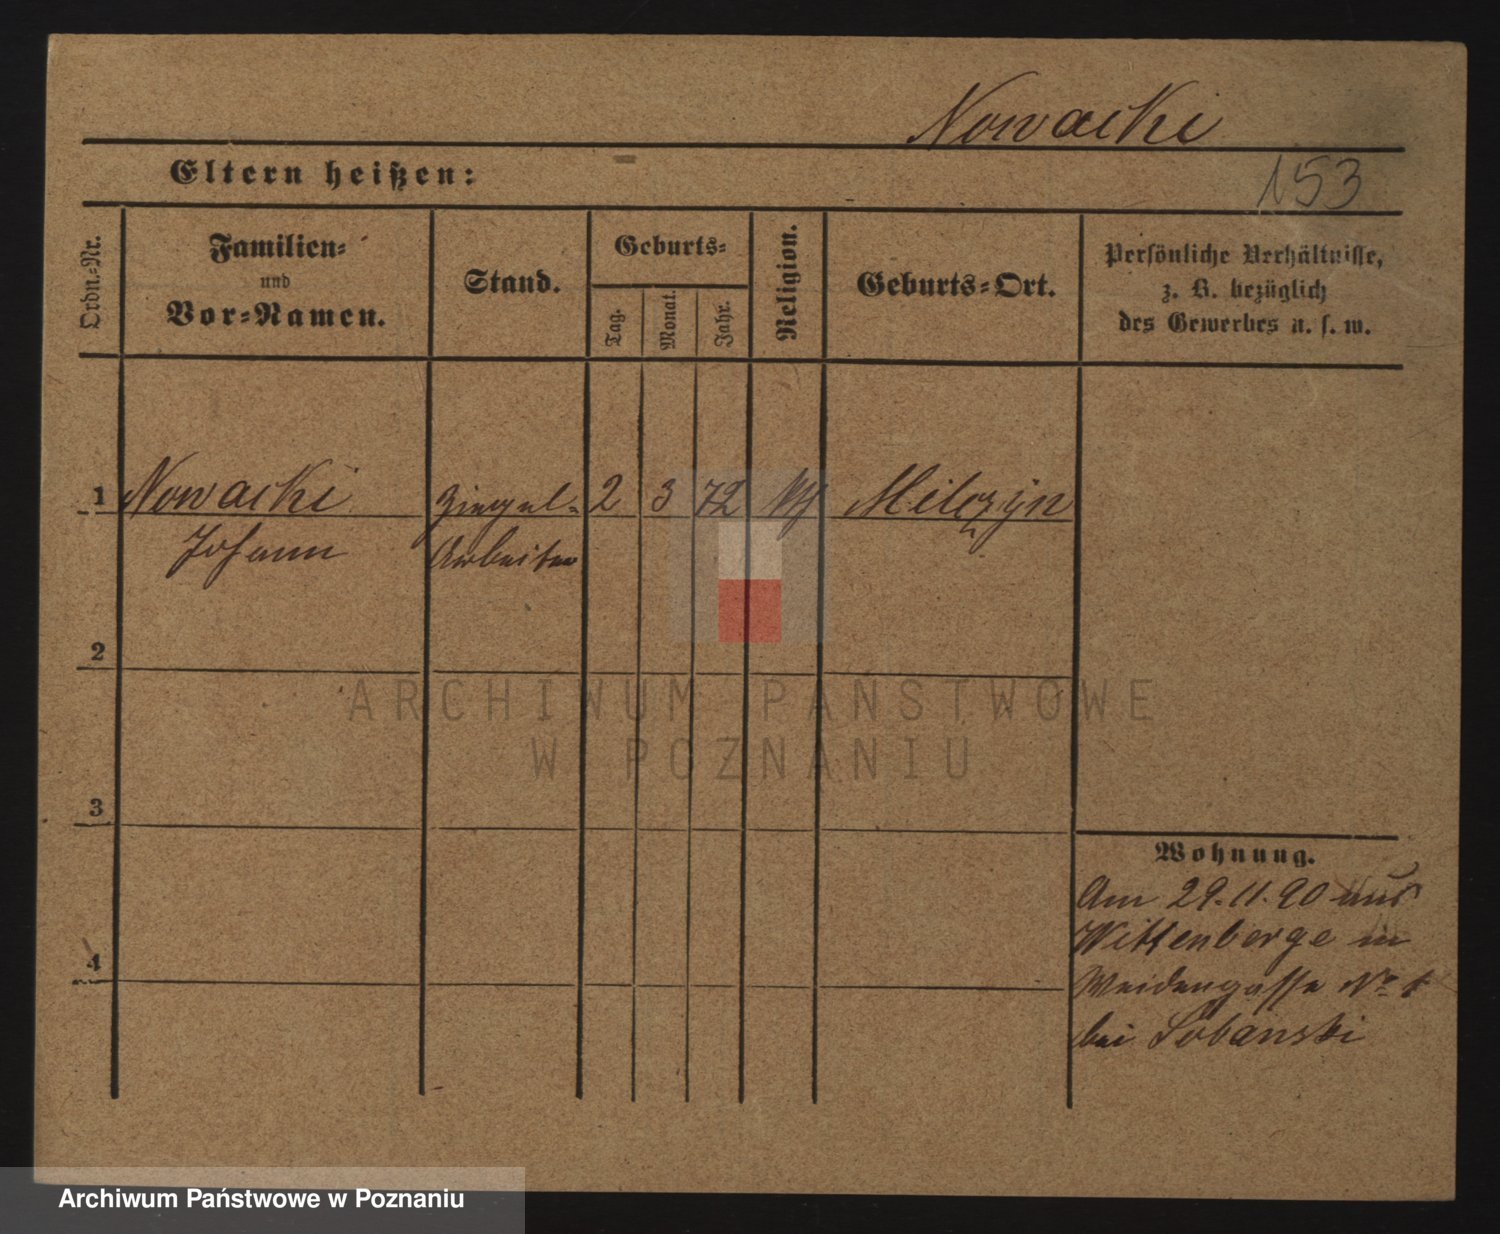 Nowacki
Eltern heißen:
153
Ordn.-Nr.
Familien-
und
Vor-Namen.
Stand.
Geburts-
Tag.
Monat.
Jahr.
Religion.
Geburts-Ort.
Persönliche Verhältnisse,
z. B. bezüglich
des Gewerbes u. s. w.
1 Nowacki Ziegel- 2 3 72 Milozyn
Johann Arbeiter
2
3
4
Wohnung.
Am 29.11.90 aus
Wittenberge in
Weidengasse No 1
bei Lobanski
ARCHIWUM PAŃSTWOWE
W POZNANIU
Archiwum Państwowe w Poznaniu